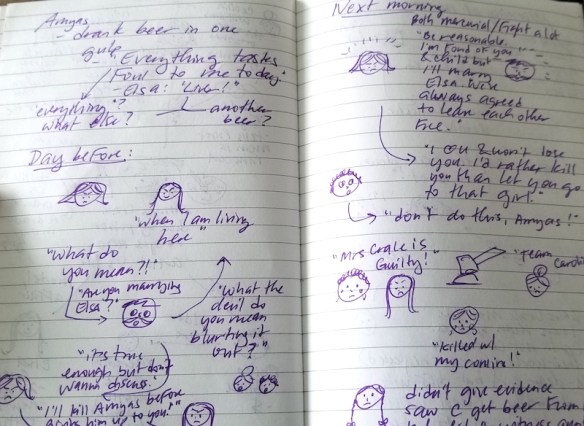 Amyas
- drank beer in one
gulp
"Everything tastes
Foul to me today"
- Elsa: "Liver!"
"everything"?
what else?
another
beer?
Day before:
"when I am living
here"
"What do
you mean?!"
"Are you marrying
Elsa?"
"What the
devil do
you mean
blurting it
out?"
"it's true
enough but don't
wanna discuss."
"I'll kill Amyas before
him up to you!"
Next morning
Both mercurial/Fight a lot
"Be reasonable,
I'm fond of you
& child but
I'll marry
Elsa. We've
always agreed
to leave each other
free."
"I won't lose
you. I'd rather kill
you than let you go
to that girl."
"don't do this, Amyas!"
"Mrs Crale is
Guilty!"
"Team
"killed w/
my coniine!"
didn't give evidence
saw C get beer From